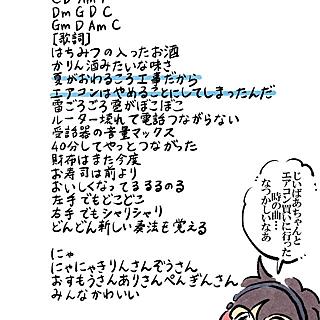 Dm G D C
Gm D Am C
[歌詞]
はちみつの入ったお酒
かりん酒みたいな味さ
夏がおわるころ工事だから
エアコンはやめることにしてしまったんだ
雷ごろごろ雲がぽこぽこ
ルーター壊れて電話つながらない
受話器の音量マックス
40分してやっとつながった
財布はまた今度
お寿司は前より
おいしくなってるるるのる
左手でもどこどこ
右手でもシャリシャリ
どんどん新しい奏法を覚える
にゃ
にゃにゃきりんさんぞうさん
おすもうさんありさんぺんぎんさん
みんなかわいい
じいばあちゃんと
エアコン買いに行った
時の曲…
なつかしいなあ